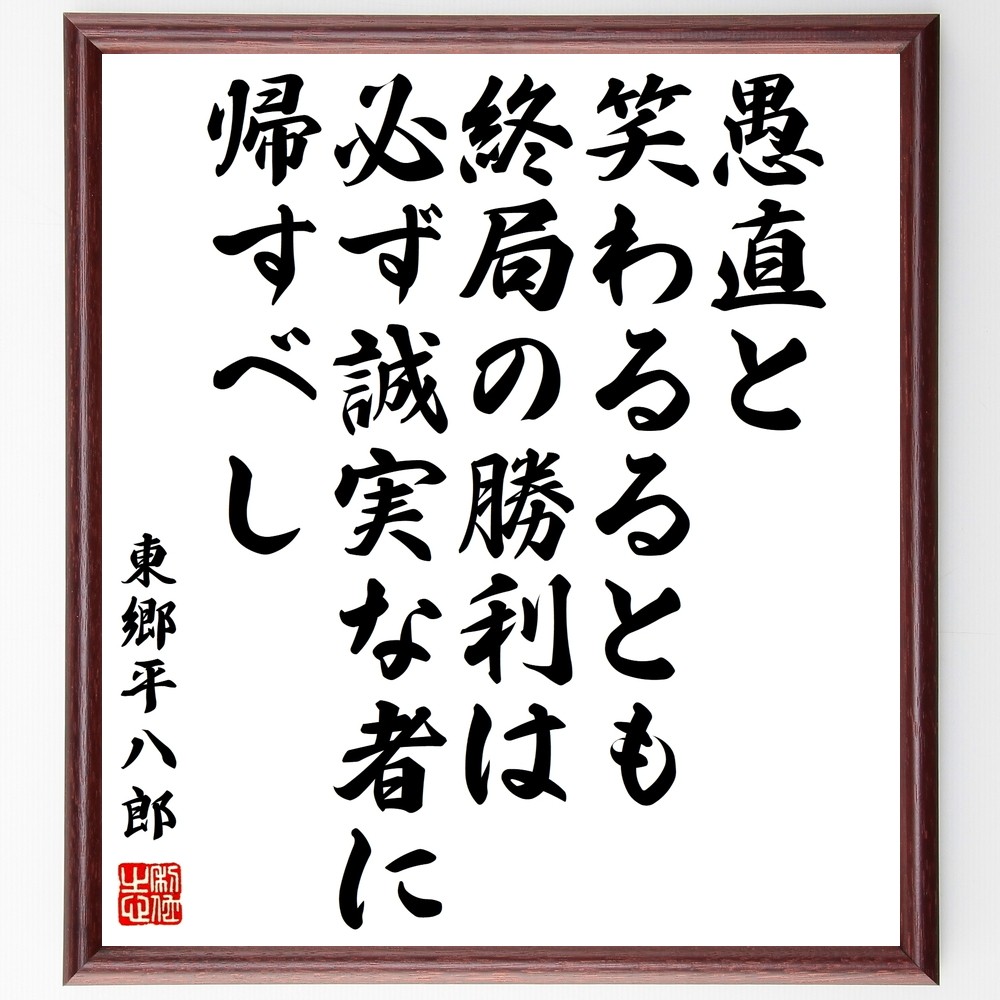 愚直と
笑わるるとも
終局の勝利は
必ず誠実な者に
帰すべし
東郷平八郎